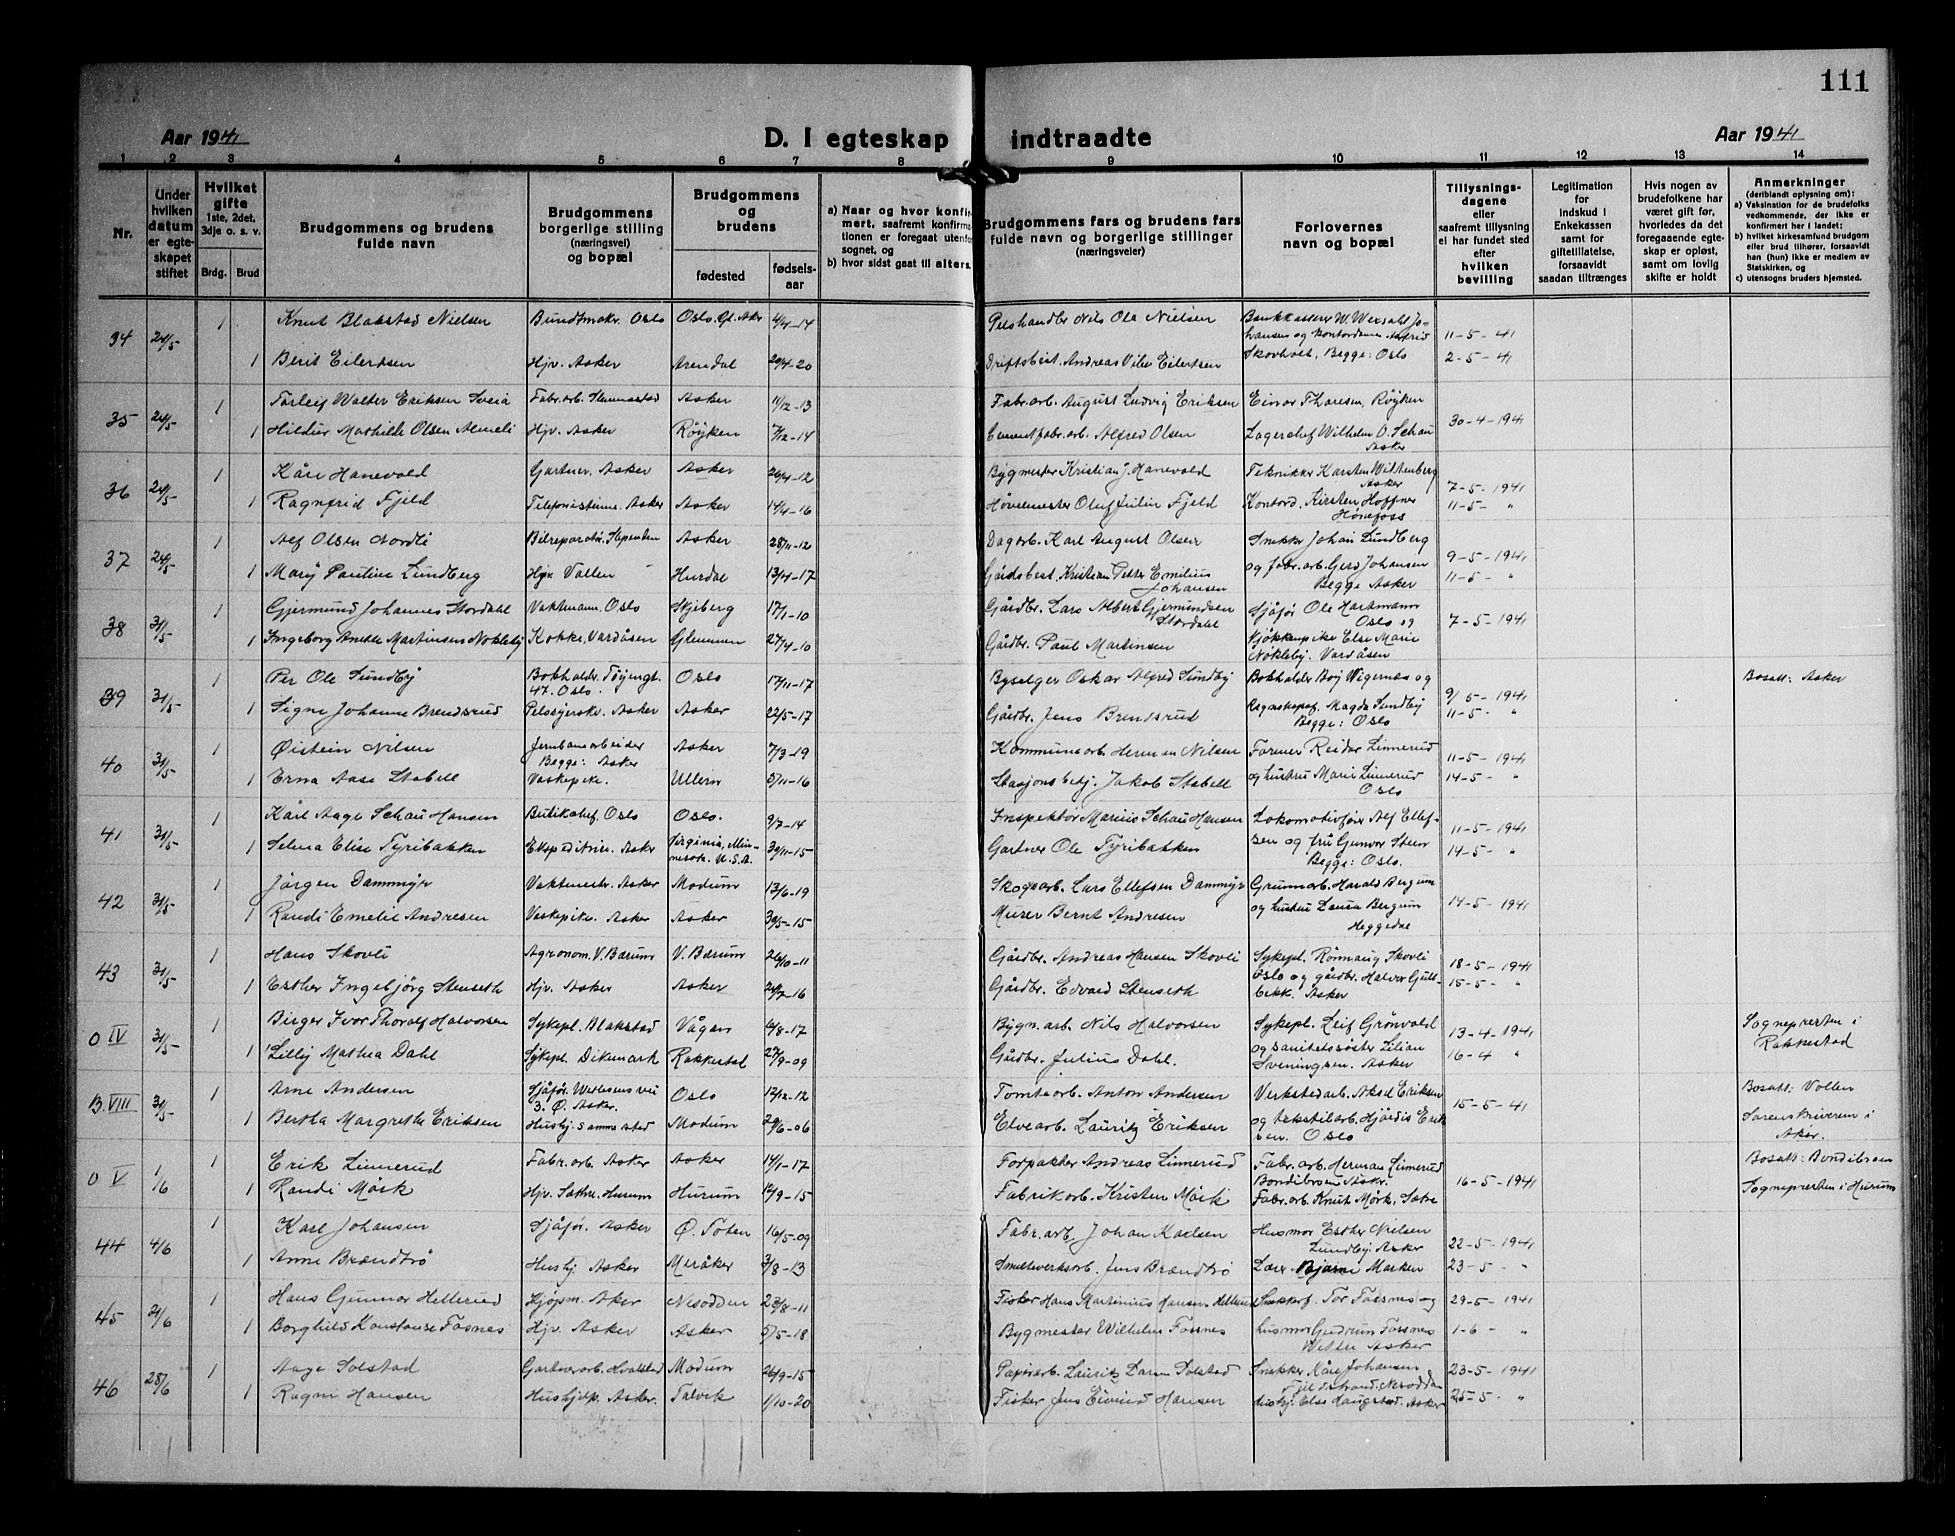 111
Aar 1941
D. I egteskap indtraadte
Aar 1941
1 2 3 4 5 6 7 8 9 10 11 12 13 14
Nr.
Under hvilken datum er egteskapet stiftet
Hvilket gifte 1ste, 2det, 3dje o. s. v.
Brdg. Brud
Brudgommens og brudens fulde navn
Brudgommens borgerlige stilling (næringsvei) og bopæl
Brudgommens og brudens
fødested
fødsels-aar
a) Naar og hvor konfirmert, saafremt konfirmationen er foregaat utenfor sognet, og
b) hvor sidst gaat til alters.
Brudgommens fars og brudens fars fulde navn og borgerlige stillinger (næringsveier)
Forlovernes navn og bopæl
Tillysnings-dagene eller saafremt tillysning ei har fundet sted efter hvilken bevilling
Legitimation for indskud i Enkekassen samt for giftetillatelse, forsaavidt saadan tiltrænges
Hvis nogen av brudefolkene har været gift før, hvorledes da det foregaaende egteskap er opløst, samt om lovlig skifte er holdt
Anmerkninger (deriblandt oplysning om):
a) Vaksination for de brudefolks vedkommende, der ikke er konfirmert her i landet;
b) hvilket kirkesamfund brudgom eller brud tilhører, forsaavidt han (hun) ikke er medlem av Statskirken, og
c) utensogns bruders hjemsted.
34 24/5 1 Knut Blakstad Nielsen Bundtmakr. Oslo Oslo. 4/4-14 Pelshandler Nils Ole Nielsen
hansen og 11-5-41
1 Berit Eilertsen Hjv. Asker Arendal 20/4-20 Driftsbest. Andreas Eilertsen Skovholt, Begge: Oslo 2-5-41
35 24/5 1 Torleif Walter Eriksen Sveia Fabr.arb. Slemmestad Asker 11/12-13 Fabr.arb. August Ludvig Eriksen Einar Thoresen, Røyken
1 Hildur Mathilde Olsen Almeli Hjv. Asker Røyken 7/12-14 Cementfabr.arb. Alfred Olsen Lagerchef Wilhelm O. Schau Asker 30-4-1941
36 24/5 1 Kåre Hanevold Gartner. Asker Asker 26/4-12 Bygmester Kristian J. Hanevold Tekniker Karsten Wiltenberg Asker 7-5-1941
1 Ragnfrid Fjeld Telefonistinne. Asker Asker 14/4-16 Høvelmester Oluf Julin Fjeld Kontord. Kirsten Hoffner Hønefoss 11-5- "
37 24/5 1 Alf Olsen Nordli Bilreparatør. Asker 28/11-12 Dagarb. Karl August Olsen Snekker Johan Lundberg
1 Mary Pauline Lundberg Hjv. Vollen Hurdal 13/4-17 Gårdsbest. Kristian Petter Emilius Johansen og fabr.arb. Gerd Johansen Begge Asker 9-5-1941 11-5- "
38 31/5 1 Gjermund Johannes Stordahl Vaktmann. Oslo Skjeberg 17/1-10 Gårdbr. Lars Albert Gjermundsen Stordahl Sjåfør Ole Hartmann Oslo og
1 Ingeborg Amalie Martinsen Nøkleby Kokke. Vardåsen Glemmen 27/4-10 Gårdbr. Paul Martinsen Kjøkkenpike Else Marie Nøkleby. Vardåsen 7-5-1941
39 31/5 1 Per Ole Sundby Bokholder. Tøyengt. 47. Oslo. Oslo 17/11-17 Byselger Oskar Alfred Sundby Bokholder Boy Wigernæs og Bosatt: Asker
1 Signe Johanne Brendsrud Pelssyerske. Asker Asker 22/5-17 Gårdbr. Jens Brendsrud Regnskapsf. Magda Sundby Begge: Oslo 9/5-1941 11-5- "
40 31/5 1 Øistein Nilsen Jernbanearbeider Begge: Asker Asker 7/3-19 Kommunearb. Herman Nilsen Former Reidar Linnerud 11-5-1941
1 Erna Aase Stabell Vaskepike. Ullern 5/11-16 Stasjonsbetj. Jakob Stabell og hustru Marie Linnerud Oslo 14-5- "
41 31/5 1 Kåre Aage Schau Hansen Butikschef. Oslo Oslo. 9/7-14 Inspektør Marius Schau Hansen Lokomotivfører Alf Ellefsen 11-5-1941
1 Selma Elise Tyribakken Ekspeditrise. Asker Virginia, Minnesota. U.S.A. 30/11-15 Gartner Ole Tyribakken og fru Gunvor Steen Begge: Oslo. 14-5- "
42 31/5 1 Jörgen Dammyr Vaktmestr. Asker Modum 13/6-19 Skogsarb. Lars Ellefsen Dammyr Gruvearb. Harald Bergum
1 Randi Emelie Andresen Vaskepike. Asker Asker 30/5-15 Murer Bernt Andresen og hustru Laura Bergum Heggedal 14-5-1941
43 31/5 1 Hans Skovli Agronom. V. Bærum V. Bærum 26/10-11 Gårdbr. Andreas Hansen Skovli Sykepl. Rönnaug Skovli 18-5-1941
1 Esther Ingebjörg Stenseth Hjv. Asker Asker 24/2-16 Gårdbr. Edvard Stenseth Oslo og gårdbr. Halvor Gullbekk. Asker 15-5- "
O IV 31/5 1 Birger Ivar Thoralf Halvorsen Sykepl. Blakstad Vågan 6/8-17 Bygn.arb. Nils Halvorsen Sykepl. Leif Grönvold 13-4-1941 Sognepresten i Rakkestad
1 Lilly Mathea Dahl Sykepl. Dikemark Rakkestad 29/9-09 Gårdbr. Julius Dahl. og sanitetssøster Lilian Sveningsen. Asker 16-4 "
B. VIII 31/5 1 Arne Andersen Sjåfør. 3. Ø. Aker. Oslo 12/12-12 Tomtearb. Anton Andersen Verkstedarb. Aksel Eriksen Bosatt: Vollen
1 Bertha Margrethe Eriksen Hushj. samme sted Modum 20/6-06 Elvearb. Lauritz Eriksen og tekstilarb. Hjördis Eriksen. Oslo 15-5-41 Sorenskriveren i Aker.
O V 1/6 1 Erik Linnerud Fabr.arb. Asker Asker 14/1-17 Forpakter Andreas Linnerud Fabr.arb. Herman Linnerud Bondibroen Asker. Bosatt: Bondibroen
1 Randi Mörk Hjv. Sætre. Hurum Hurum 12/9-15 Fabrikarb. Kristen Mörk Fabr.arb. Knut Mörk, Sætre 16-5-1941 Sognepresten i Hurum
44 4/6 1 Karl Johansen Sjåfør. Asker Ø. Toten 16/5-09 Fabr.arb. Johan Karlsen Husmor Esther Nielsen Lundby. Asker 22-5-1941
1 Anne Brændtrø Hushj. Asker Meråker 3/8-13 Smelteverksarb. Jens Brændtrø Lærer Bjarne Marken 23-5- "
45 21/6 1 Hans Gunnar Hellerud Kjøpm. Aker Nesodden 23/8-11 Fisker Hans Martinius Hansen Hellerud Snekkerf. Tor Fossnes og 29-5-1941
1 Borghild Konstanse Fosnes Hjv. Asker Asker 5/5-18 Bygmester Wilhelm Fossnes husmor Gudrun Fossnes Wettre Asker 1-6- "
46 28/6 1 Aage Solstad Gartnerarb. Hvalstad Modum 26/9-15 Papirarb. Lauritz Solstad Snekker Kåre Johansen Fjellstrand. Nesodden 23-5-1941
1 Ragni Hansen Hushjelp. Asker. Talvik 1/10-20 Fisker Jens Eivind Hansen Hushj. Else Haugstad. Asker 25-5- "